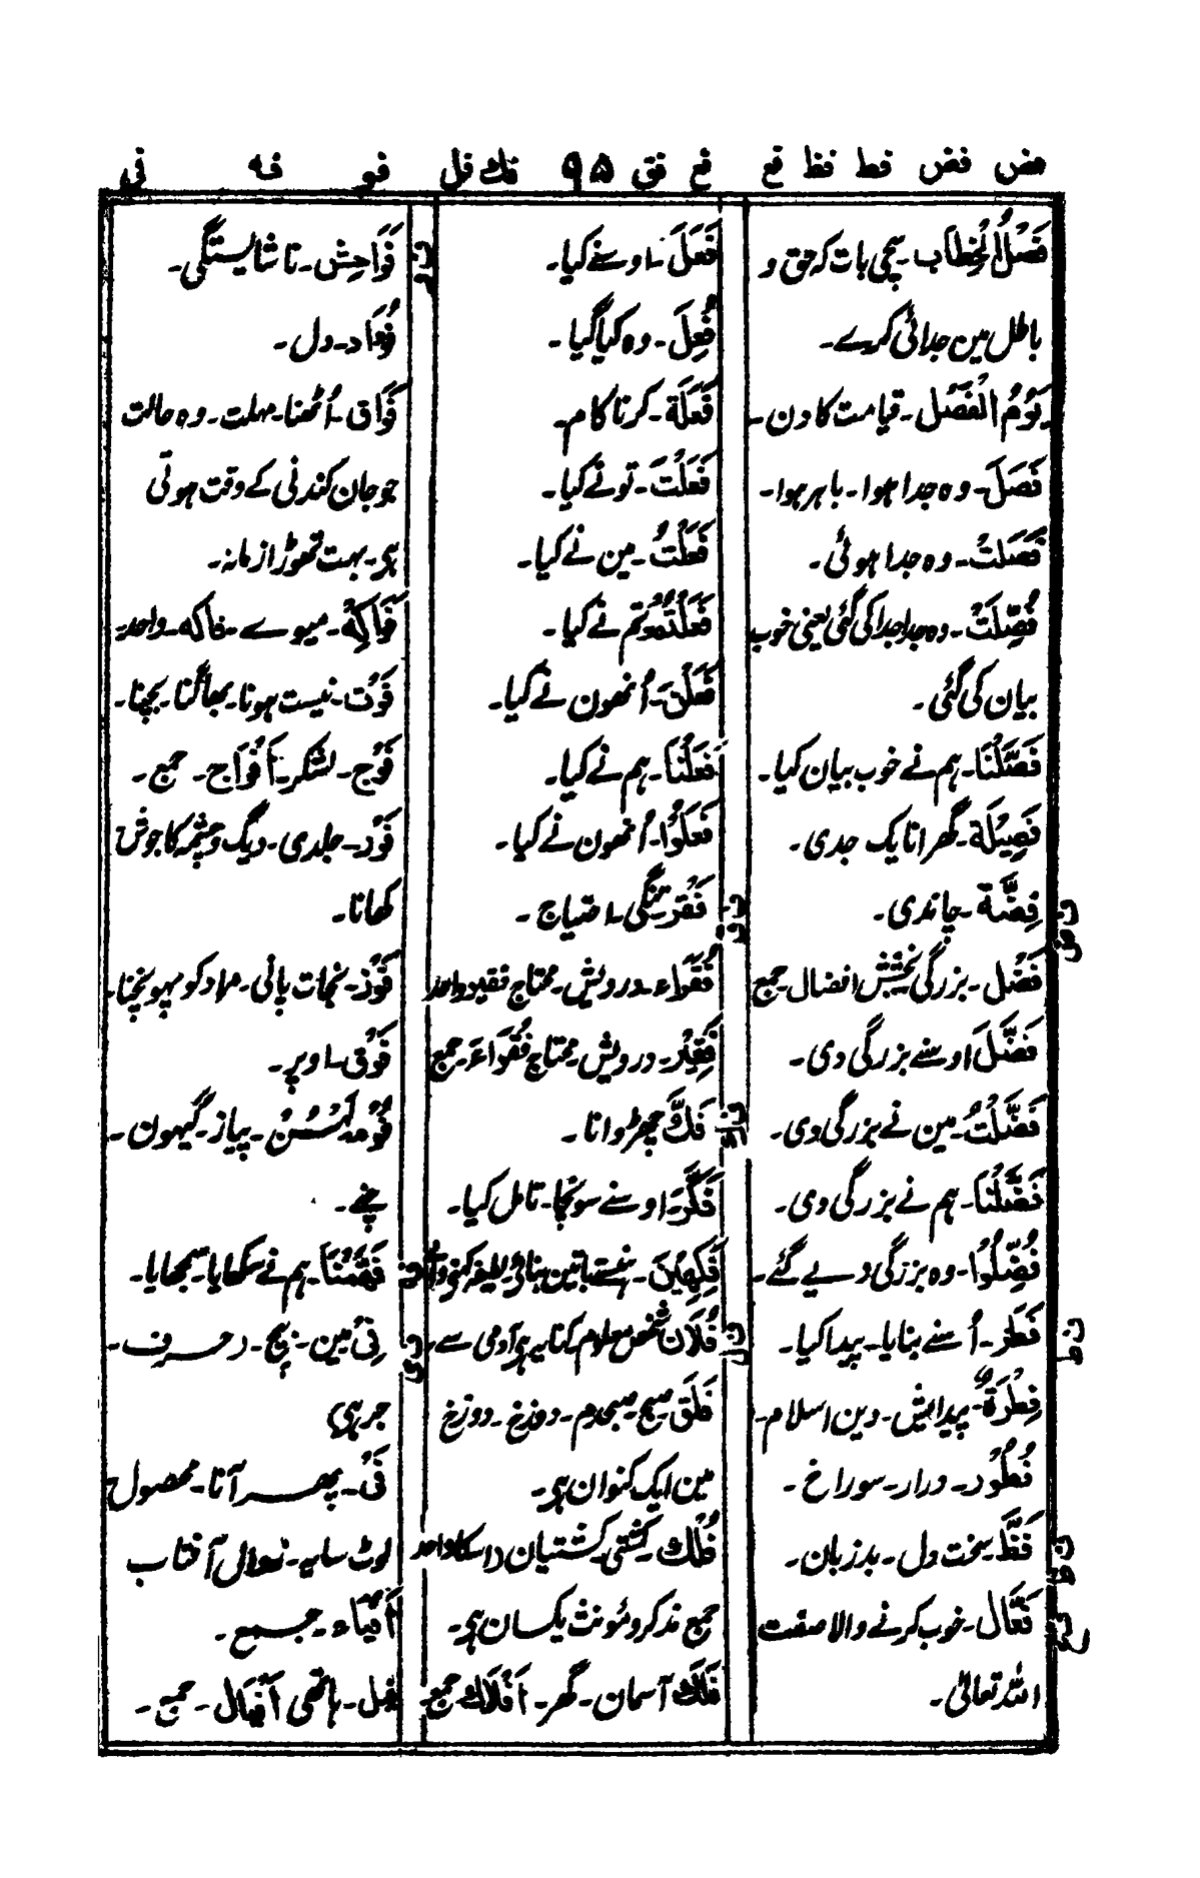 فض فض فط فظ فع فع فق ۹۵ فك فل فو فہ فی
فَصْلُ الْخِطَاب۔ سچی بات کہ حق و
باطل مین جدائی کرے۔
یَوْمُ الْفَصْل۔ قیامت کا دن۔
فَصَلَ۔ وہ جدا ہوا۔ باہر ہوا۔
فَصَلَتْ۔ وہ جدا ہوئی۔
فُصِّلَتْ۔ وہ جدا جدا کی گئی یعنی خوب
بیان کی گئی۔
فَصَّلْنَا۔ ہم نے خوب بیان کیا۔
فَصِیْلَة۔ گھرانا یک جدی۔
فض
فِضَّة۔ چاندی۔
فَضْل۔ بزرگی بخشش افضال۔ جمع
فَضَّلَ اوسنے بزرگی دی۔
فَضَّلْتُ۔ مین نے بزرگی دی۔
فَضَّلْنَا۔ ہم نے بزرگی دی۔
فُضِّلُوْا۔ وہ بزرگی دیے گئے۔
فط
فَطَرَ۔ اُسنے بنایا۔ پیدا کیا۔
فِطْرَةٌ۔ پیدایش۔ دین اسلام۔
فُطُوْر۔ درار۔ سوراخ۔
فظ
فَظّ۔ سخت دل۔ بد زبان۔
فع
فَعَّال۔ خوب کرنے والا صفت
اللہ تعالیٰ۔
فَعَلَ۔ اوسنے کیا۔
فُعِلَ۔ وہ کیا گیا۔
فَعْلَة۔ کرنا کام۔
فَعَلْتَ۔ تو نے کیا۔
فَعَلْتُ۔ مین نے کیا۔
فَعَلْتُمْ۔ تم نے کیا۔
فَعَلْنَ۔ اُنھون نے کیا۔
فَعَلْنَا۔ ہم نے کیا۔
فَعَلُوْا۔ اُنھون نے کیا۔
فق
فَقْر۔ تنگی۔ احتیاج۔
فُقَرَاء۔ درویش۔ محتاج فقیر واحد
فَقِیْر۔ درویش۔ محتاج فُقَرَاءَ۔ جمع
فك
فَكَّ چھڑوانا۔
فَكَّرَ۔ اوسنے سونچا۔ تامل کیا۔
فَكِهِیْنَ۔
فل
فُلَان شخص معلوم کنایہ ہر آدمی سے۔
فَلَق صبح۔ صبحدم۔ دوزخ۔ دوزخ
مین ایک کنوان ہی۔
فُلْك۔ کشتی۔ کشتیان اسکا واحد
جمع مذکر و مؤنث یکسان ہی۔
فَلَك آسمان۔ گھر۔ اَفْلَاك جمع
فو
فَوَاحِش۔ ناشایستگی۔
فُؤَاد۔ دل۔
فَوَاق۔ اُٹھنا۔ مہلت۔ وہ حالت
جو جان کندنی کے وقت ہوتی
ہی۔ بہت تھوڑا زمانہ۔
فَوَاكِهُ۔ میوے۔ فاکہ۔ واحد۔
فَوْت۔ نیست ہونا۔ بھاگنا۔ بچنا۔
فَوْج۔ لشکر۔ اَفْوَاج۔ جمع۔
فَوْر۔ جلدی۔ دیگ و چشمہ کا جوش
کھانا۔
فَوْز۔ نجات پانی۔ مراد کو پہونچنا۔
فَوْق۔ اوپر۔
فُوْم۔ لہسن۔ پیاز۔ گیہون۔
چنے۔
فہ
فَهَّمْنَا۔ ہم نے سکھایا۔ سمجھایا۔
فی
فِیْ۔ مین۔ بیچ۔ حرف۔
جر ہی
فَیْ۔ پھر آنا۔ محصول
لوٹ سایہ۔ زوال آفتاب
اَفْیَاء۔ جمع۔
فیل۔ ہاتھی اَفْیَال۔ جمع۔